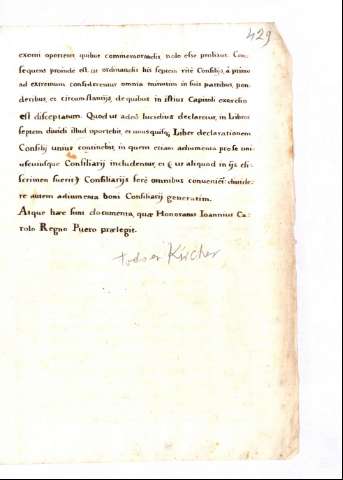 429
exemi oportere, quibus commemorandis nolo esse prolixus. Con-
sequens proinde est ut ordinandis his septem ritè Consilijs, à primo
ad extremum consideremus omnia minutim in suis partibus, pon-
deribus, et circumstantijs, de quibus in istius Capituli exordio
est disceptatum. Quod ut adeò lucidius declaretur, in Libros
septem dividi illud oportebit, et unusquisq. Liber declarationem
Consilij unius continebit, in quem etiam adiumenta pro se uni-
uscuiusque Consiliarij includentur, et ut aliquod in ijs di-
scrimen fuerit) Consiliarijs ferè omnibus convenient: divide-
re autem adiumenta boni Consiliarij generatim.
Atque haec sunt documenta, quae Honoratus Ioannius Ca-
rolo Regno Puero praelegit.
todo en Kircher